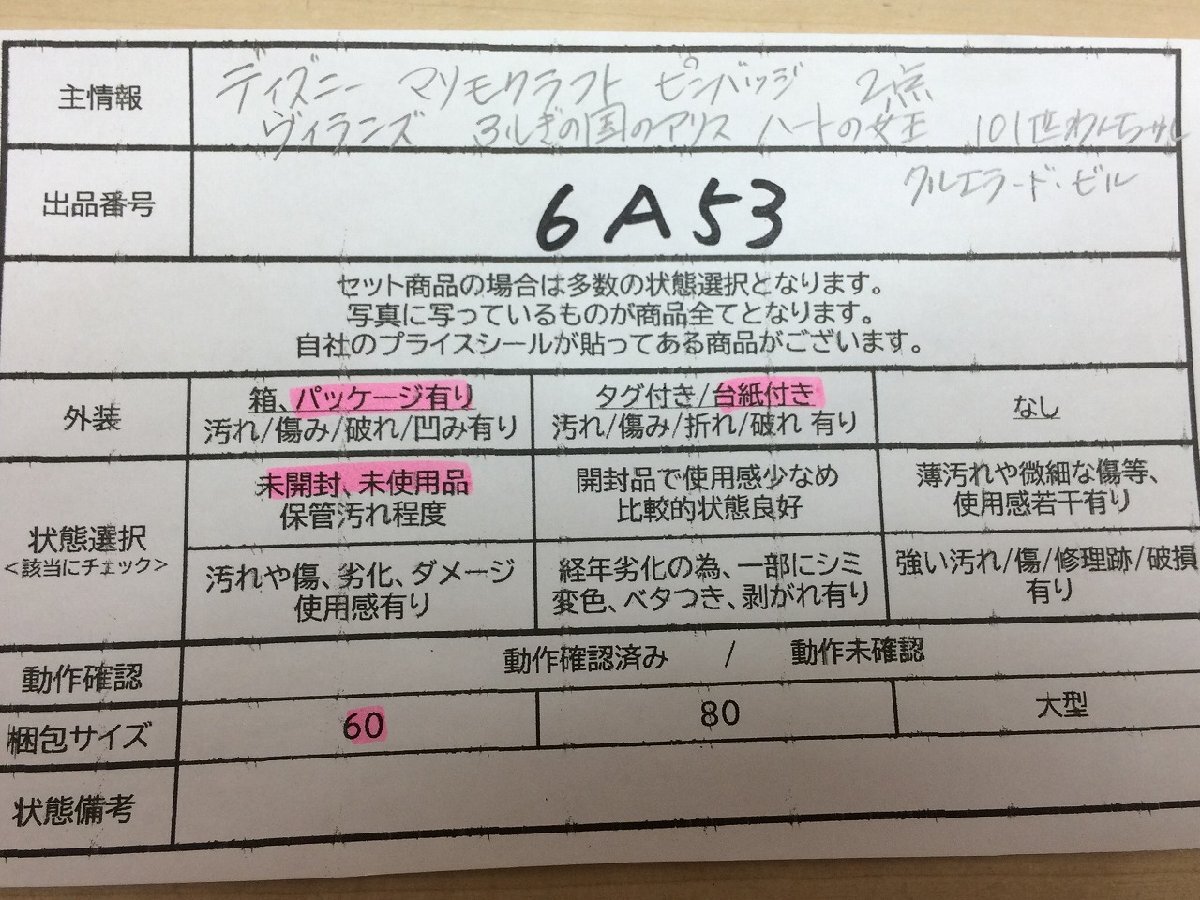 主情報
ディズニー マリモクラフト ピンバッジ 2点
ヴィランズ ふしぎの国のアリス ハートの女王 101匹わんちゃん
クルエラ・ド・ビル
出品番号
6A53
セット商品の場合は多数の状態選択となります。
写真に写っているものが商品全てとなります。
自社のプライスシールが貼ってある商品がございます。
外装
箱、パッケージ有り
汚れ/傷み/破れ/凹み有り
タグ付き/台紙付き
汚れ/傷み/折れ/破れ 有り
なし
状態選択
<該当にチェック>
未開封、未使用品
保管汚れ程度
開封品で使用感少なめ
比較的状態良好
薄汚れや微細な傷等、
使用感若干有り
汚れや傷、劣化、ダメージ
使用感有り
経年劣化の為、一部にシミ
変色、ベタつき、剥がれ有り
強い汚れ/傷/修理跡/破損
有り
動作確認
動作確認済み / 動作未確認
梱包サイズ
60
80
大型
状態備考